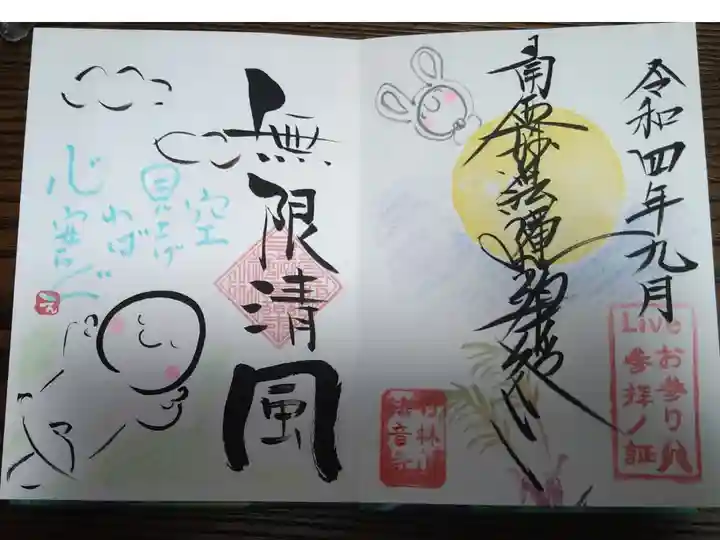 令和四年九月
南無妙法蓮華経
Liveお参り
参拝ノ証
竹林山
法音寺
無限清風
空
見上げ
れば
心安らぐ